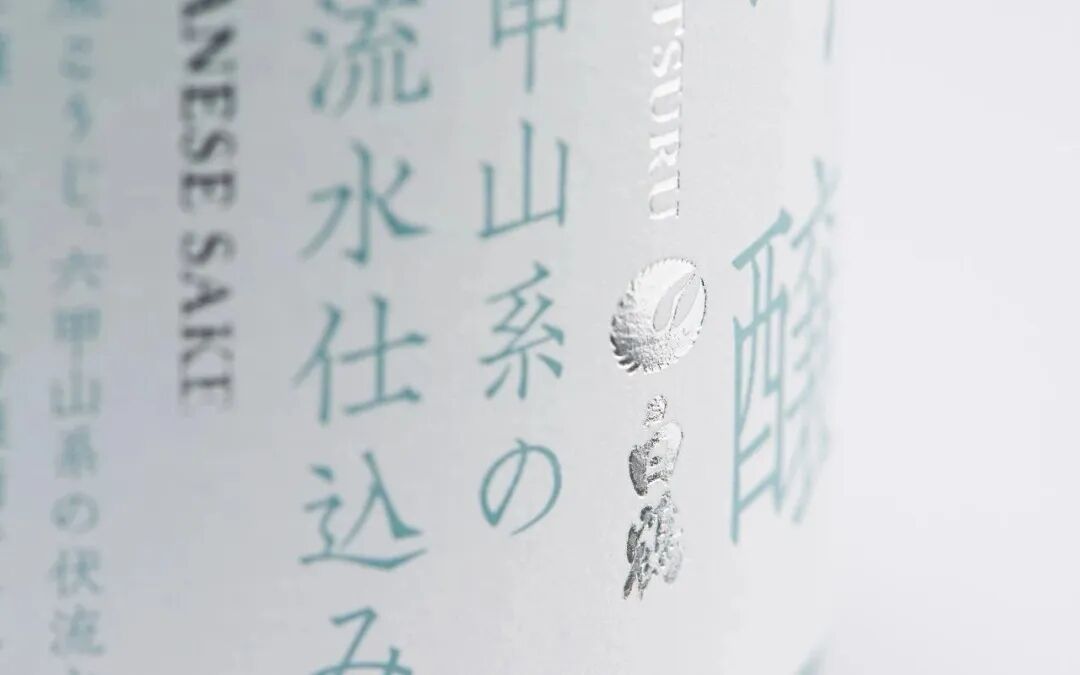 醸
TSURU 白鶴
甲山系の
流水仕込み
ANESE SAKE
こうじ、六甲山系の伏流